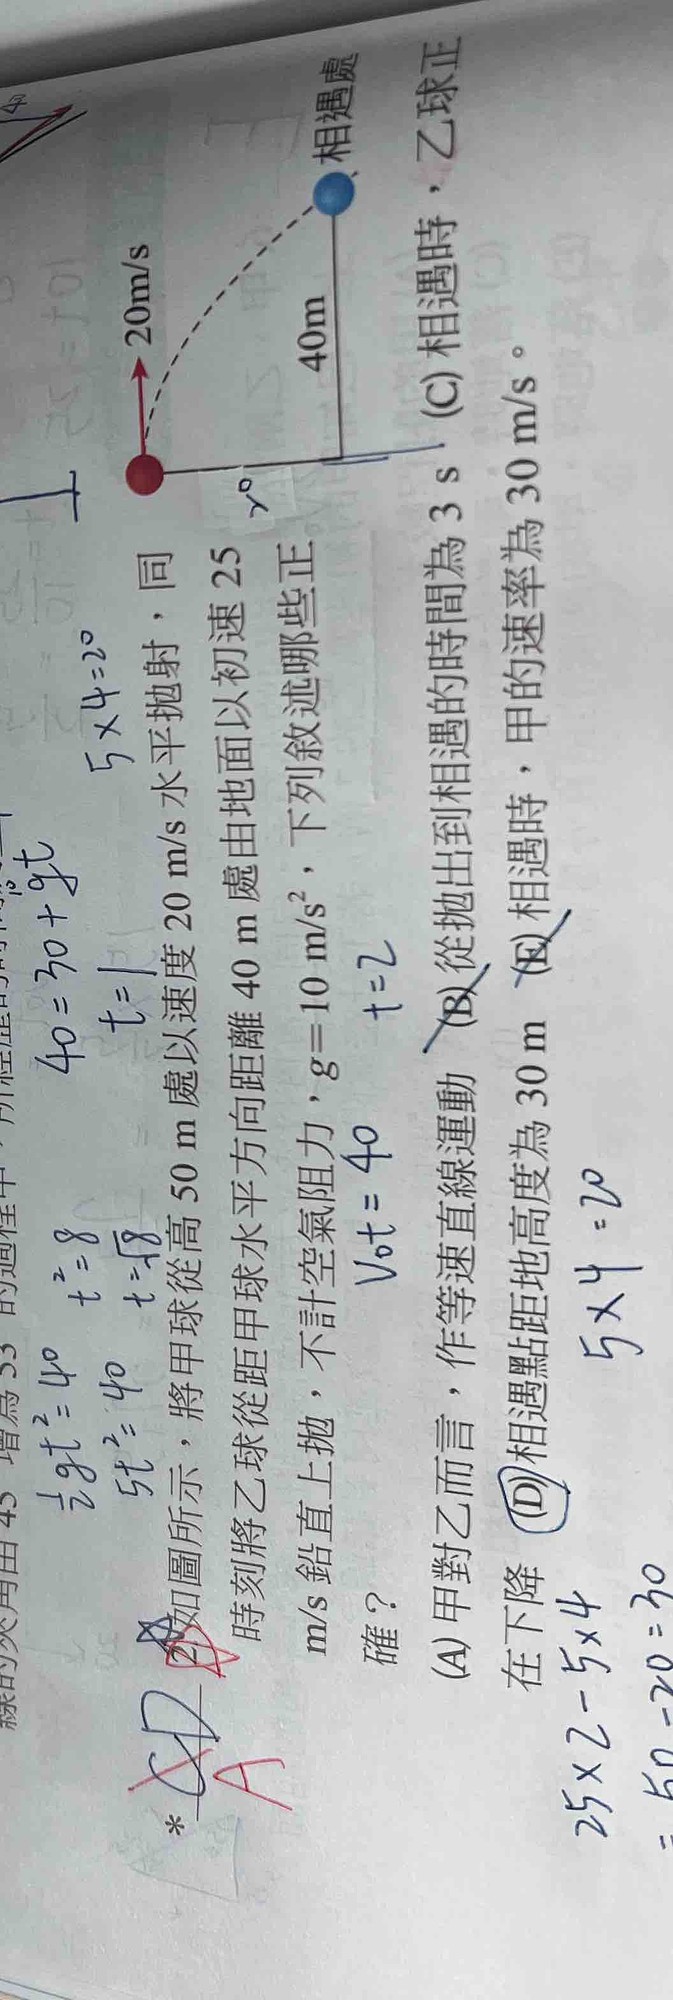 ½gt²=40 t²=8 40=30+gt
5t²=40 t=√8 t=1 5×4=20
* AD
A
2. 如圖所示,將甲球從高 50 m 處以速度 20 m/s 水平拋射,同
時刻將乙球從距甲球水平方向距離 40 m 處由地面以初速 25
m/s 鉛直上拋,不計空氣阻力,g=10 m/s²,下列敘述哪些正
確?
V₀t=40 t=2
20m/s
20
40m
相遇處
(A) 甲對乙而言,作等速直線運動 (B) 從拋出到相遇的時間為 3 s (C) 相遇時,乙球正
在下降 (D) 相遇點距地高度為 30 m (E) 相遇時,甲的速率為 30 m/s。
25×2-5×4 5×4=20
=50-20=30